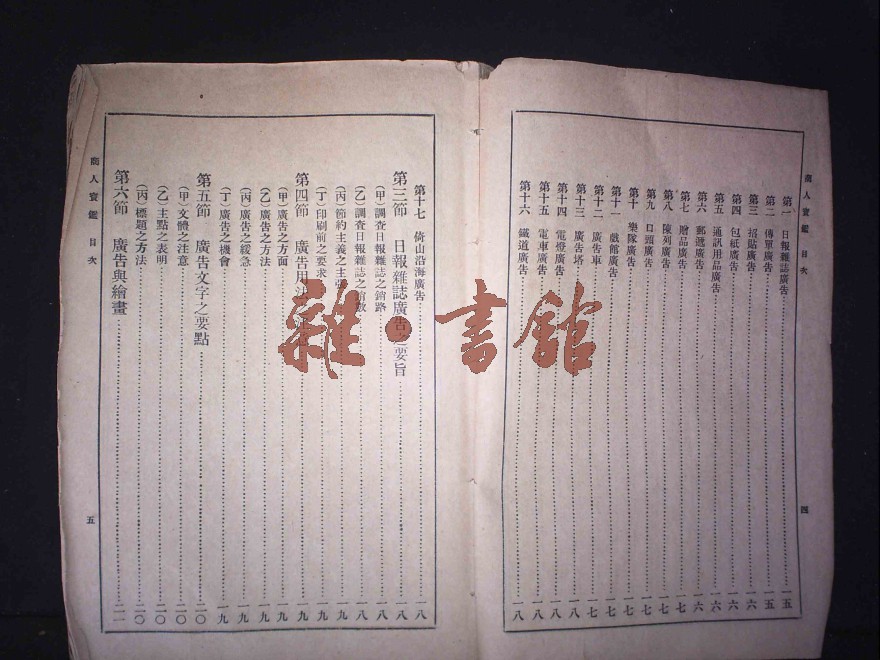 商人寶鑑 目次 四
第一 日報雜誌廣告 一五
第二 傳單廣告 一五
第三 招貼廣告 一六
第四 包紙廣告 一六
第五 通訊用品廣告 一六
第六 郵遞廣告 一六
第七 贈品廣告 一七
第八 陳列廣告 一七
第九 口頭廣告 一七
第十 樂隊廣告 一七
第十一 戲館廣告 一七
第十二 廣告車 一七
第十三 廣告塔 一八
第十四 電燈廣告 一八
第十五 電車廣告 一八
第十六 鐵道廣告 一八
第十七 倚山沿海廣告 一八
第三節 日報雜誌廣告之要旨 一八
(甲)調查日報雜誌之銷路 一八
(乙)調查日報雜誌之銷數 一八
(丙)節約主義之主張 一九
(丁)印刷前之要求 一九
第四節 廣告用法 一九
(甲)廣告之方面 一九
(乙)廣告之方法 一九
(丙)廣告之緩急 一九
(丁)廣告之機會 一九
第五節 廣告文字之要點 二〇
(甲)文體之注意 二〇
(乙)主點之表明 二〇
(丙)標題之方法 二〇
第六節 廣告與繪畫 二一
商人寶鑑 目次 五
雜·書館